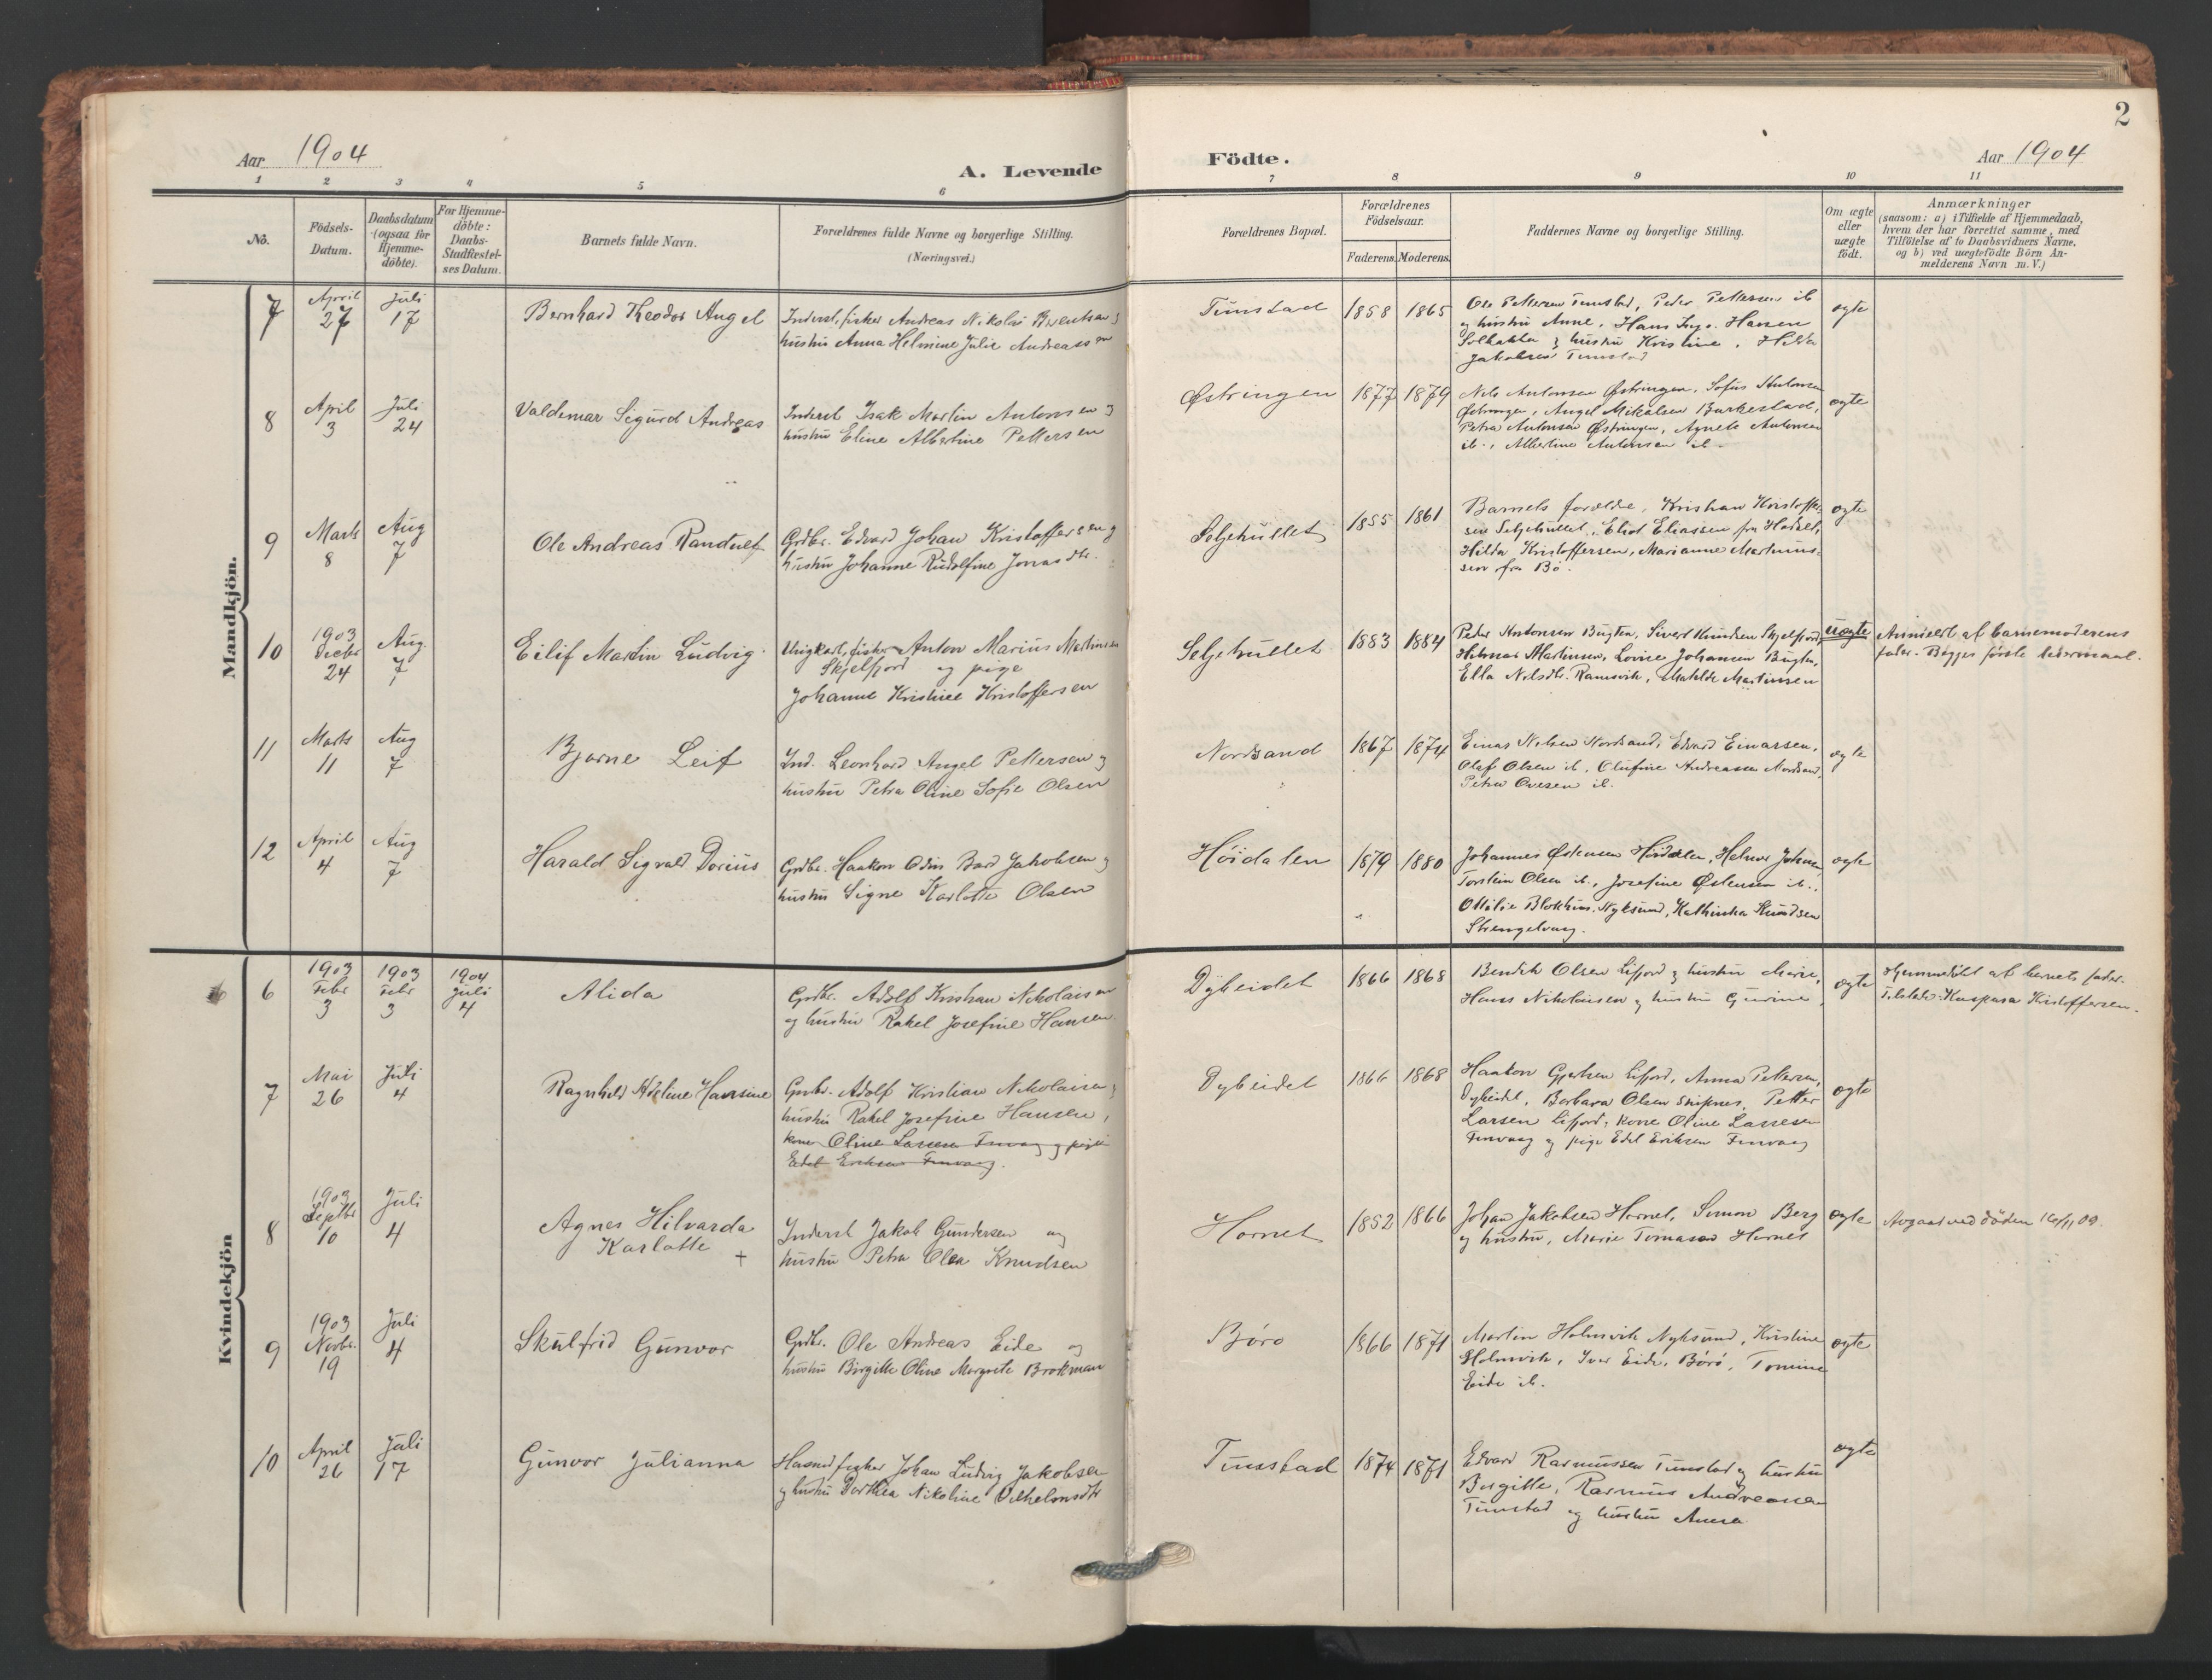 2
Aar 1904
A. Levende
Födte.
Aar 1904
1 2 3 4 5 6 7 8 9 10 11
No.
Födsels-
Datum.
Daabsdatum
(ogsaa for
Hjemme-
döbte).
For Hjemme-
döbte:
Daabs-
Stadfæstel-
ses Datum.
Barnets fulde Navn.
Forældrenes fulde Navne og borgerlige Stilling.
(Næringsvei.)
Forældrenes Bopæl.
Forældrenes
Födselsaar.
Faderens. Moderens.
Faddernes Navne og borgerlige Stilling.
Om ægte
eller
uægte
födt.
Anmærkninger
(saasom: a) i Tilfælde af Hjemmedaab,
hvem der har forrettet samme, med
Tilföielse af to Daabsvidners Navne,
og b) ved uægtefödte Börn An-
melderens Navn m. V.)
Mandkjön.
7
April
27
Juli
17
Bernhard Theodor Angel
Inderst, fisker Andreas Nikolai
hustru Anna Helmine Julie Andreassen
Tunstad
1858 1865
Ole Pettersen Tunstad, Peder Pettersen ib
og hustru Anne, Hans Hansen
Solbakke og hustru Kristine, Hilda
Jakobsen Tunstad
ægte
8
April
3
Juli
24
Valdemar Sigurd Andreas
Inderst Isak Martin Antonsen og
hustru Eline Albertine Pettersen
Østringen
1877 1879
Nils Antonsen Østringen, Sofus Antonsen
Østringen, Angel Mikalsen Barkestad,
Petra Antonsen Østringen, Agnete Antonsen
ib., Albertine Antonsen ib.
ægte
9
Marts
8
Aug
7
Ole Andreas Randulf
Grdbr. Edvard Johan Kristoffersen og
hustru Johanne Rudolfine Jonasdtr.
Seljehullet
1855 1861
Barnets forældre, Kristian Kristoffer-
sen Seljehullet, Eliassen fra Hadsel,
Hilda Kristoffersen, Marianne Martinus-
sen fra Bø.
ægte
10
1903
Decbr
24
Aug.
7
Eilif Martin Ludvig
Ungkarl, fisker Anton Marius Martinsen
Skjelfjord og pige
Johanne Kristine Kristoffersen
Seljehullet
1883 1884
Peder Antonsen Bugten, Sivert Knudsen Skjelfjord,
Helmer Martinsen, Lovise Johansen Bugten,
Ella Nilsdtr. Ramsvik, Matilde Martinsen
uægte
Anmeldt af barnemoderens
fader. Begges første leiermaal.
11
Marts
11
Aug
7
Bjarne Leif
Ind. Leonhard Angel Pettersen og
hustru Petra Oline Sofie Olsen
Nordsand
1867 1874
Einar Nilsen Nordsand, Edvard Einarsen,
Olaf Olsen ib., Olufine Andreassen Nordsand,
Petra Ovesen ib.
ægte
12
April
4
Aug
7
Harald Sigvald Dorius
Grdbr. Haakon Odin Bard Jakobsen og
hustru Signe Karlotte Olsen
Høidalen
1879 1880
Johannes Østensen Høidalen, Helmer Johnsen
Torstein Olsen ib., Josefine Østensen ib.,
Ottilie Blokhus, Nyksund, Kathinka Knudsen
Strengelvaag.
ægte
Kvindekjön
6
1903
Febr
3
1903
Febr
3
1904
Juli
4
Alida
Grdbr. Adolf Kristian Nikolaisen
og hustru Rakel Josefine Hansen
Dybeidet
1866 1868
Bendik Olsen Lifjord og hustru Marie,
Hans Nikolaisen og hustru Gurine
ægte
Hjemmedøbt af barnets fader.
Tilstede: Kaspara Kristoffersen.
7
Mai
26
Juli
4
Ragnhild Adeline Hansine
Grdbr. Adolf Kristian Nikolaisen og
hustru Rakel Josefine Hansen,
kone Oline Larsen Finvaag og pige
Edel Eriksen Finvaag.
Dybeidet
1866 1868
Haakon Lifjord, Anna Pettersen,
Dybeidet, Barbara Olsen Snipnes, Petter
Larsen Lifjord, kone Oline Lassesen
Finvaag og pige Edel Eriksen Finvaag
ægte
8
1903
Septbr
10
Juli
4
Agnes Hilvarda
Karlotte +
Inderst Jakob Gundersen og
hustru Petra Olea Knudsen
Hornet
1852 1866
Johan Jakobsen Hornet, Simon Berg
og hustru, Marie Tomasen Hornet
ægte
Avgaat ved døden 16/11 09.
9
1903
Novbr.
19
Juli
4
Skulfrid Gunvor
Grdbr. Ole Andreas Eide og
hustru Birgitte Oline Margrete Brokman
Børø
1866 1871
Martin Holmvik Nyksund, Kristine
Holmvik, Ivar Eide, Børø, Tomine
Eide ib.
ægte
10
April
26
Juli
17
Gunvor Julianna
Husmd fisker Johan Ludvig Jakobsen
og hustru Dorthea Nikoline Vilhelmsdtr
Tunstad
1874 1871
Edvard Rasmussen Tunstad og hustru
Birgitte, Rasmus Andreassen
Tunstad og hustru Anna
ægte